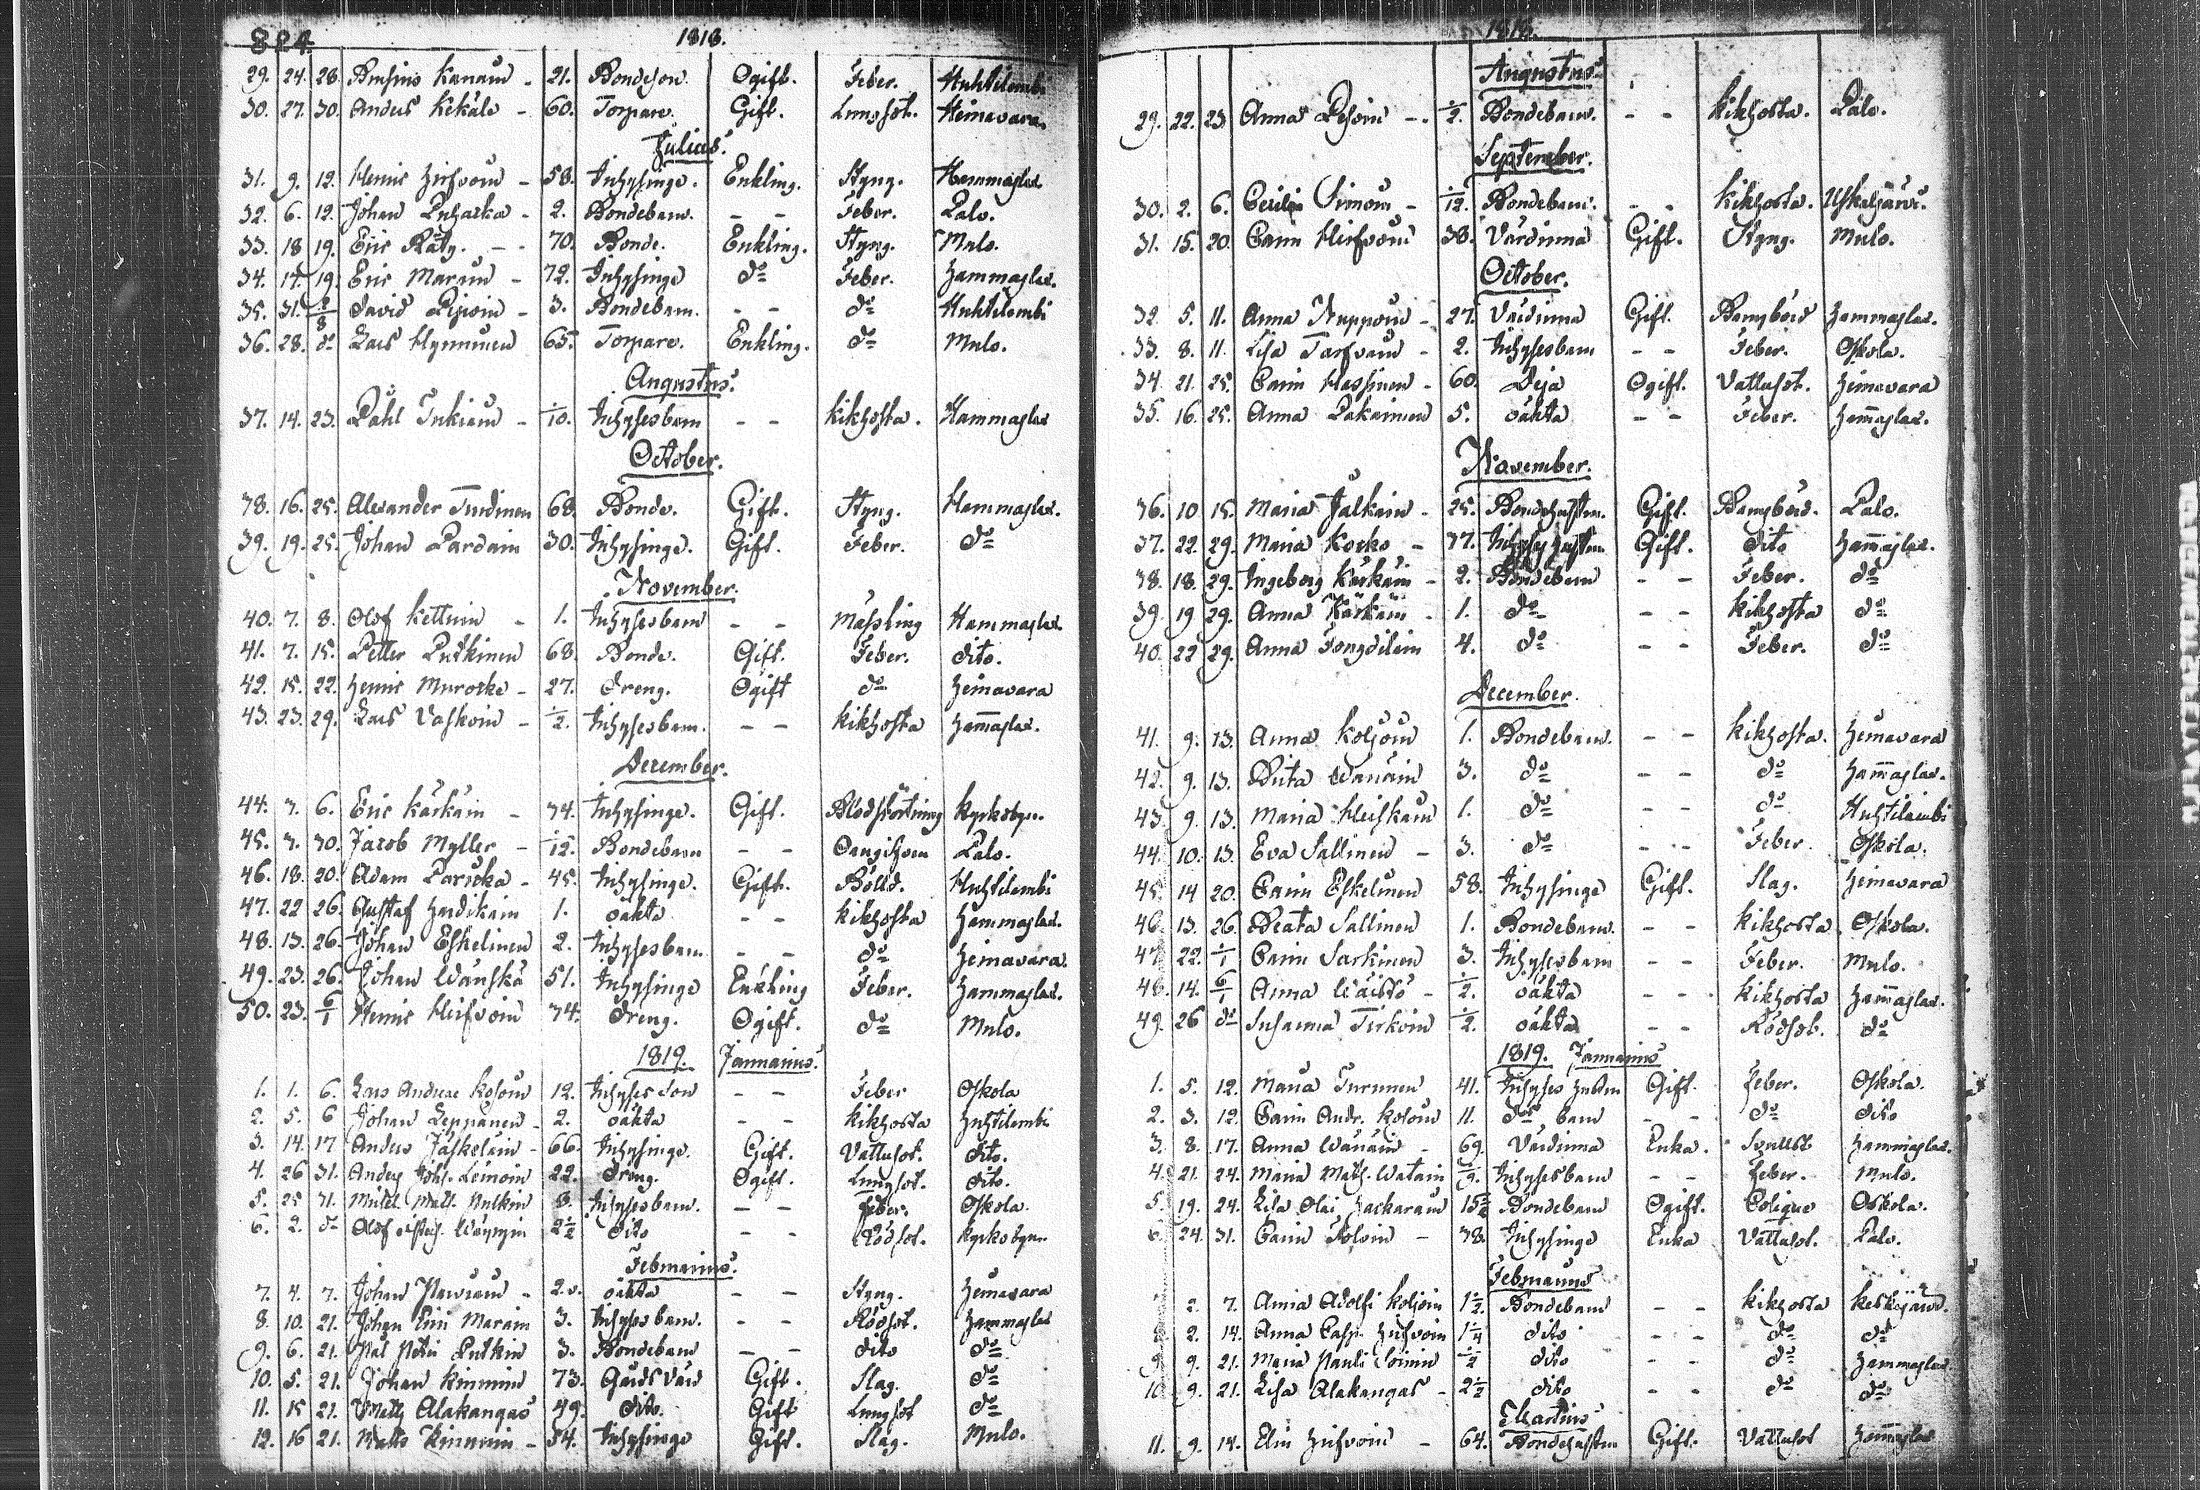 824. 1818.
29. 24. 28. Kanain - 21. Bondeson. Ogift. Feber. Huhtilambi
30. 27. 30. Anders Kekäle - 60. Torpare. Gift. Lungsot. Heinavara
Julius.
31. 9. 12. Henric Hirfvoin - 58. Inhysinge. Enkling. Styng. Hammaslax
32. 6. 12. Johan Puharka - 2. Bondebarn. - - Feber. Palo.
33. 18 19. Eric Räty. - - 70. Bonde. Enkling. Styng. Mulo.
34. 17. 19. Eric Marain - 72. Inhysinge do Feber. Hammaslax.
35. 31. 2/8 David Pijroin - 3. Bondebarn. - - do Huhtilambi
36. 28. do Lars Hynninen 65. Torpare. Enkling. do Mulo.
Augustus.
37. 14. 23. Påhl Turkiain - 1/10. Inhysesbarn - - Kikhosta. Hammaslax
October.
38. 16. 25. Alexander Tundinen 68. Bonde. Gift. Styng. Hammaslax.
39. 19. 25. Johan Pardain 30. Inhysinge. Gift. Feber. do
November.
40. 7. 8. Olof Kettuin - 1. Inhysesbarn - - Mässling Hammaslax.
41. 7. 15. Petter Putkinen 68. Bonde. Gift. Feber. dito.
42. 15. 22. Henric Muroske - 27. dreng. Ogift do Heinavara
43. 23. 29. Lars Vaskoin - 1/2. Inhysesbarn. - - Kikhosta Hammaslax.
December.
44. 3. 6. Eric Kärkäin - 74. Inhysinge. Gift. Blodstörtning Kyrkobyn.
45. 3. 30. Jacob Myller - 1/12. Bondebarn - - Oangifven Palo.
46. 18. 20. Adam Parucka - 45. Inhysinge. Gift. Böld. Huhtilambi
47. 22 26. Gustaf Hardikain 1. oäkta - - Kikhosta Hammaslax.
48. 13. 26. Johan Eskelinen 2. Inhysesbarn - - do Heinavara.
49. 23. 26. Johan Wänskä 51. Inhysinge Enkling Feber. Hammaslax.
50. 23. 6/1 Henric Hirfvoin 74. dreng. Ogift. do Mulo.
1819. Januarius.
1. 1. 6. Lars Andreae Kosoin 12. Inhyses Son - - Feber Oskola
2. 5. 6 Johan Leppänen - 2. oäkta - - Kikhosta Huhtilambi
3. 14. 17 Anders Jäskeläin - 66. Inhysinge. Gift. Vattusot. dito.
4. 26 31. Anders Joh. Lemoin 22. dreng. Ogift. Lungsot. dito.
5. 25 31. Michel Matt. Nutkin 8. Inhysesbarn. - - Feber. Oskola.
6. 2. do Olof 2 1/2 dito - - Rödsot. Kyrkobyn.
Februarius.
7. 4. 7. Johan - 2. oäkta - - Styng. Heinavara
8. 10. 21. Johan Erici Marain 3. Inhysesbarn. - - Rödsot. Hammaslax
9. 6. 21. Pål Petri Putkin 3. Bondebarn - - dito do
10. 5. 21. Johan Kinnuin 73. Gårds Värd Gift. Slag. do
11. 15 21. Matts Alakangas 49. dito. Gift Lungsot do
12. 16 21. Matts Kinnunin - 54. Inhysinge Gift. Slag. Mulo.
1818.
Augustus.
29. 22. 23. Anna Pesoin -. 1/2. Bondebarn. - - Kikhosta. Palo.
September.
30. 2. 6. Cecilia Simoin - 1/12. Bondebarn. - - Kikhosta. Uskaljärvi.
31. 15. 20. Carin Hirfvoin 38. Värdinna Gift. Styng. Mulo.
October.
32. 5. 11. Anna Nuppoin - 27. Värdinna Gift. Barnsbörd Hammaslax.
33. 8. 11. Lisa Tarfvain - 2. Inhysesbarn - - Feber. Oskola.
34. 21. 25. Carin Hassinen - 60. Deja Ogift. Vattusot. Heinavara
35. 16. 25. Anna Pakarinen 5. oäkta - - Feber. Hammaslax.
November.
36. 10 15. Maria Jalkain - 25. Bondehustru. Gift. Barnsbörd. Palo.
37. 22. 29. Maria Korko - 37. Inhyses hustru Gift. dito Hammaslax.
38. 18. 29. Ingeborg Kärkäin - 2. Bondebarn - - Feber. do
39. 19 29. Anna Kärkäin - 1. do - - Kikhosta do
40. 22 29. Anna Tongdilain 4. do - - Feber. do
December.
41. 9. 13. Anna Koljoin 1. Bondebarn. - - Kikhosta. Heinavara
42. 9. 13. Brita Wänäin 3. do - - do Hammaslax.
43. 9. 13. Maria Heiskain 1. do - - do Huhtilambi
44. 10. 13. Eva Sallinen - 3. do - - Feber. Oskola.
45. 14 20. Carin Eskelinen 58. Inhysinge Gift. Slag. Heinavara
46. 13. 26. Beata Sallinen 1. Bondebarn. - - Kikhosta. Oskola.
47. 22. 1/1 Carin Sarkinen 3. Inhysesbarn - - Feber. Mulo.
48. 14. 6/1 Anna Wäistö - 1/2. oäkta - - Kikhosta Hammaslax.
49. 26 do Susanna Tirkoin 1/2. oäkta - - Rödsot. do
1819. Januarius
1. 5. 12. Maria Turunen 41. Inhyses hustru Gift. Feber. Oskola.
2. 3. 12. Carin Andr. Kosoin 11. do barn - - do dito
3. 8. 17. Anna Wänäin - 69. Värdinna Enka. Hammaslax.
4. 21. 24. Maria Math. Watain Inhysesbarn - - Feber. Mulo.
5. 19. 24. Lisa Olai Zackarain 15 1/2 Bondebarn Ogift. Colique Oskola.
6. 24. 31. Carin Tolvoin - 38. Inhysinge Enka Vattusot. Palo.
Februarius
2. 7. Anna Adolfi Koljoin 1 1/2. Bondebarn - - Kikhosta Keskijärvi.
8 2. 14. Anna Casp. Hirfvoin 1 1/4 dito - - do do
9. 9. 21. Maria Pauli Soinin 1/2 dito - - do Hammaslax
10. 9. 21. Lisa Alakangas - 2 1/2 dito - - do do
Martius
11. 9. 14. Elin Hirfvoin - 64. Bondehustru Gift. Vattusot Hammaslax